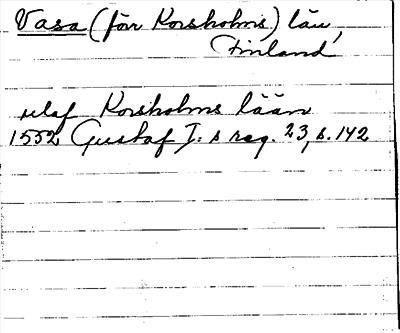 Vasa (förr Korsholms) län,
Finland
utaf Korsholms lään
1552 Gustaf I:s reg. 23, s. 142